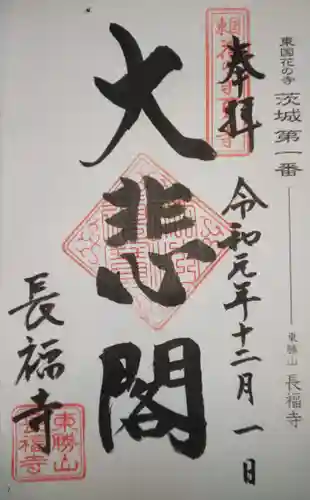 東国花の寺 茨城 第一番 東勝山 長福寺
奉拝
令和元年十二月一日
大悲閣
長福寺
東勝山
長福寺